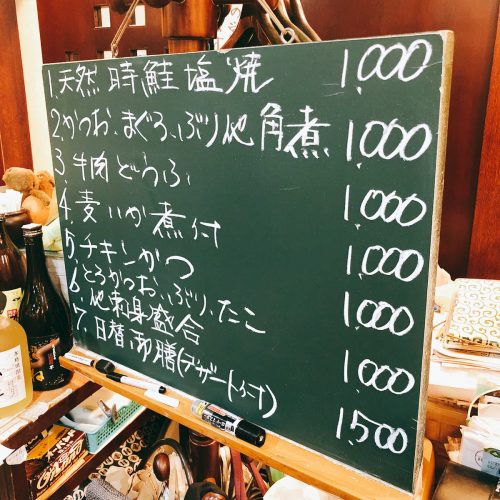 1.天然時鮭塩焼 1,000
2.かつお、まぐろ、ぶり他角煮 1,000
3.牛肉どうふ 1,000
4.麦いか煮付 1,000
5.チキンかつ 1,000
6.とろかつお、ぶり、たこ
他刺身盛合 1,000
7.日替御膳(デザート付) 1,500